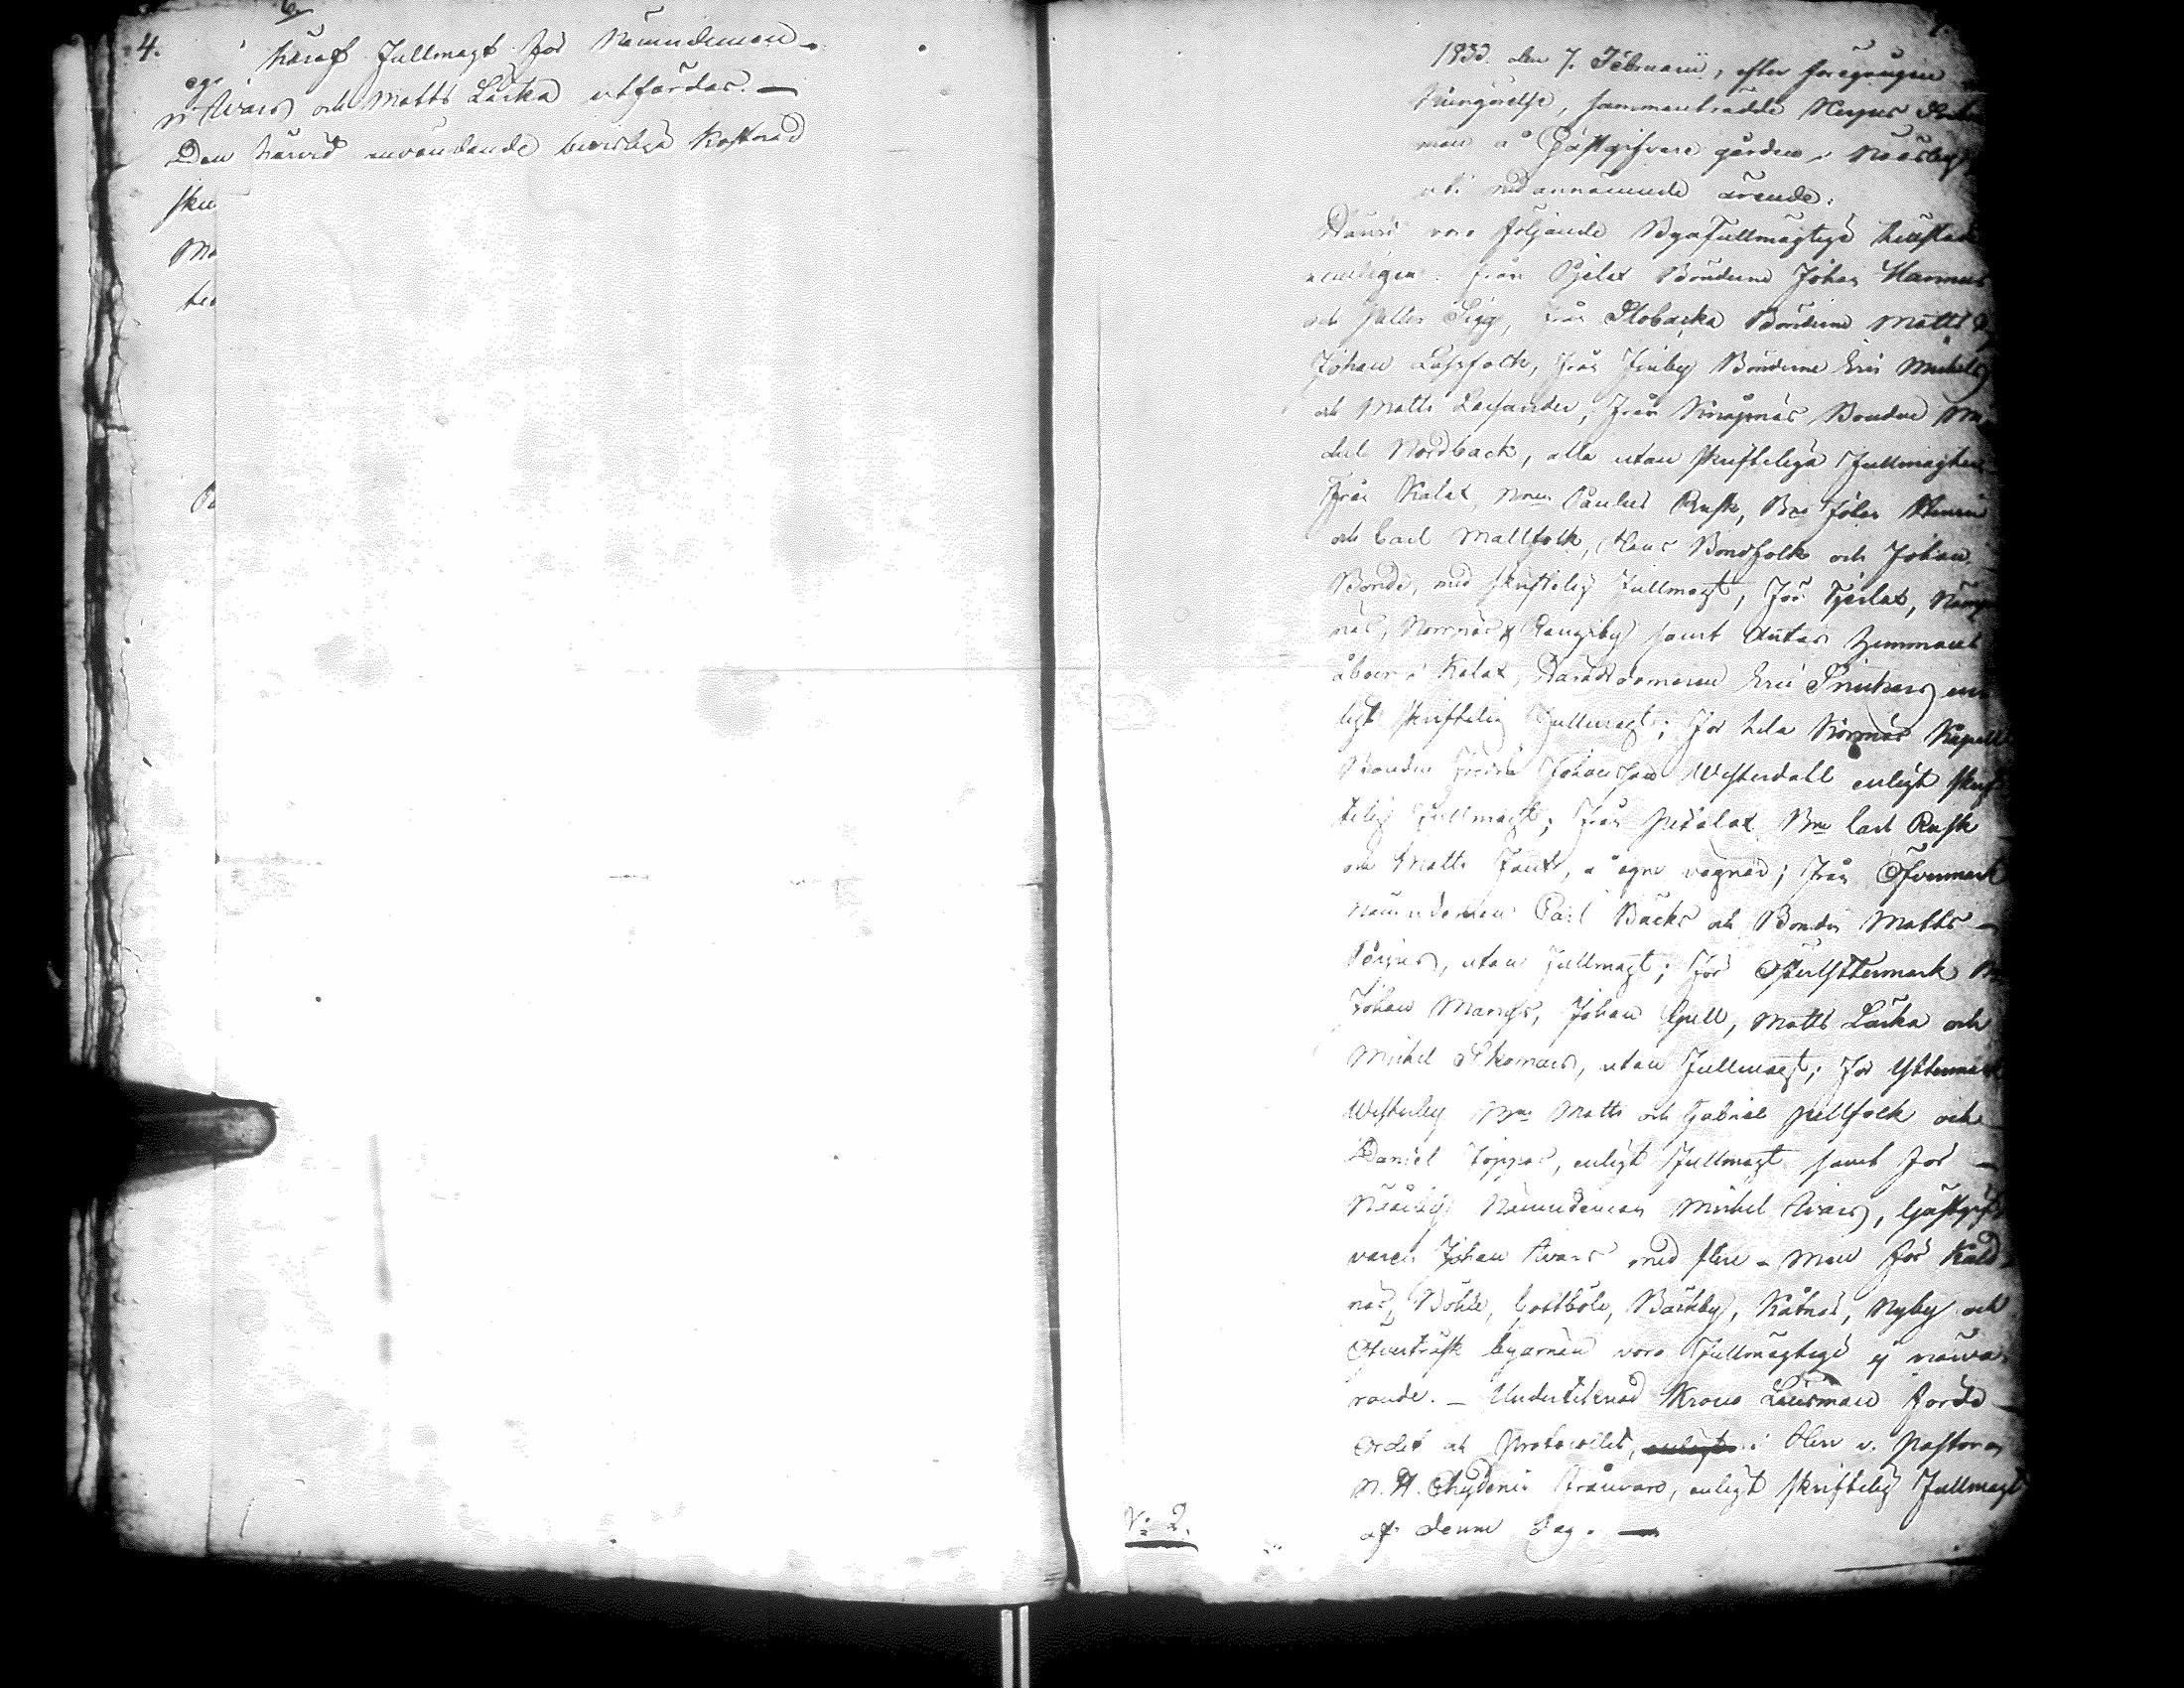 4.
häraf Fullmagt för Nämndeman
Ivars och Matts Lärka utfärdas. —
Den härvid användande bevisliga kostnad
sku
Ma
1833. den 7. Februarii, efter föregången
kungörelse, sammanträdde Nerpes Sockne
män å Gästgifvare gården i Näsby,
uti nedannämnde ärende.
Härvid voro följande Byafullmägtige tillstädes
nemligen: från Pjelax Bönderne Johan Hannus
och Petter Sigg, från Slobacka Bönderne Matts
Johan Lassfolk, från Finby Bönderne Eric Michels
och Matts Lassander, från Knåpnäs Bonden Mi
chel Nordback, alla utan skriftelige Fullmagter
från Kalax, Paulus Rusk, Johan Henric
och Carl Mattfolk, Hans Bondfolk och Johan
Bonde, med skriftelig Fullmagt, för Tjerlax, Nämp
näs, Norrnäs, Rangsby samt Hemmans
åboer i Kalax, Häradsdomaren Eric Snickars en
ligt skriftelig Fullmagt; för hela Korsnäs Kapell
Bonden Johansson Westerdahl enligt skrif
telig Fullmagt; från Petalax Bne Carl Rusk
och Matts Fant, å egne vägnar; från Öfvermark
Nämndeman Carl Backs och Bonden Matts —
utan fullmagt; för Öster Yttermark
Johan Mangs, Johan Gull, Matts Lärka och
Michel Skomars, utan Fullmagt; för Yttermark
Westerby Bne Matts och Gabriel Pellfolk och
Daniel Toppar, enligt Fullmagt samt för —
Näsby Nämndeman Michel Ivars, Gästgif
varen Johan Ivars med flere – Men för Kald
näs, Böhle, Gottböle, Bäckby, Kåtnäs, Nyby och
Öfverträsk byarne voro Fullmägtige ej närva
rande. — Undertecknad Krono Länsman förde
Ordet och Protocollet, i Herr v. Pastoren
N. H. Chydenii frånvaro, enligt skriftelig Fullmagt
af denne dag. —
N: 2.